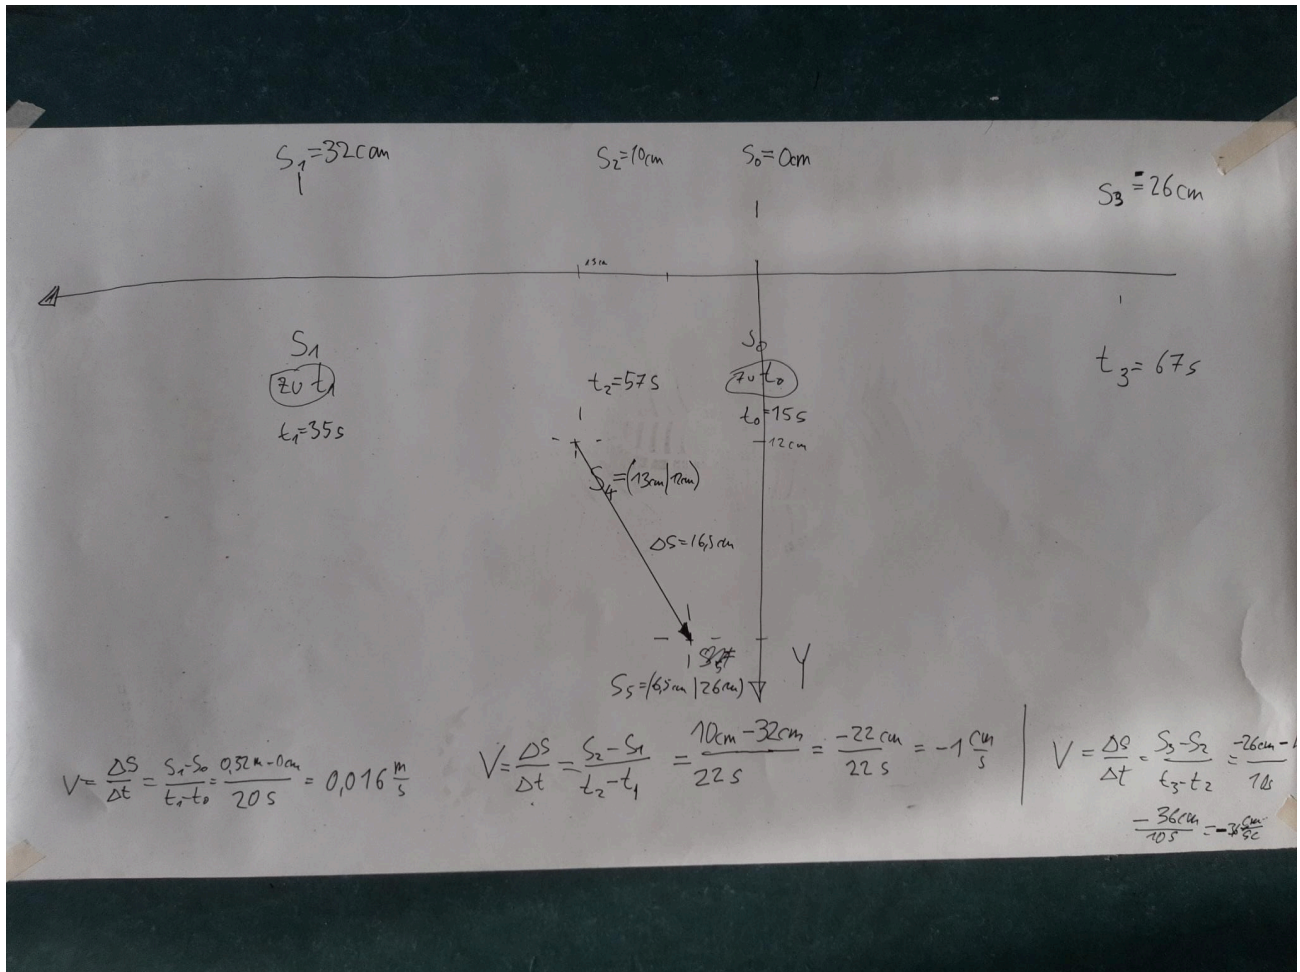 S₁=32cm
S₂=10cm
S₀=0cm
S₃=-26cm
S₁
zu t₁
t₁=35s
t₂=57s
S₀
zu t₀
t₀=15s
t₃=67s
12cm
S₄=(13cm|12cm)
ΔS=16,5cm
S₅=(6,5cm|26cm)
Y
V=ΔS/Δt=(S₁-S₀)/(t₁-t₀)=(0,32m-0cm)/20s=0,016 m/s
V=ΔS/Δt=(S₂-S₁)/(t₂-t₁)=(10cm-32cm)/22s=-22cm/22s=-1 cm/s
V=ΔS/Δt=(S₃-S₂)/(t₃-t₂)=-26cm-
10s
-36cm/10s=